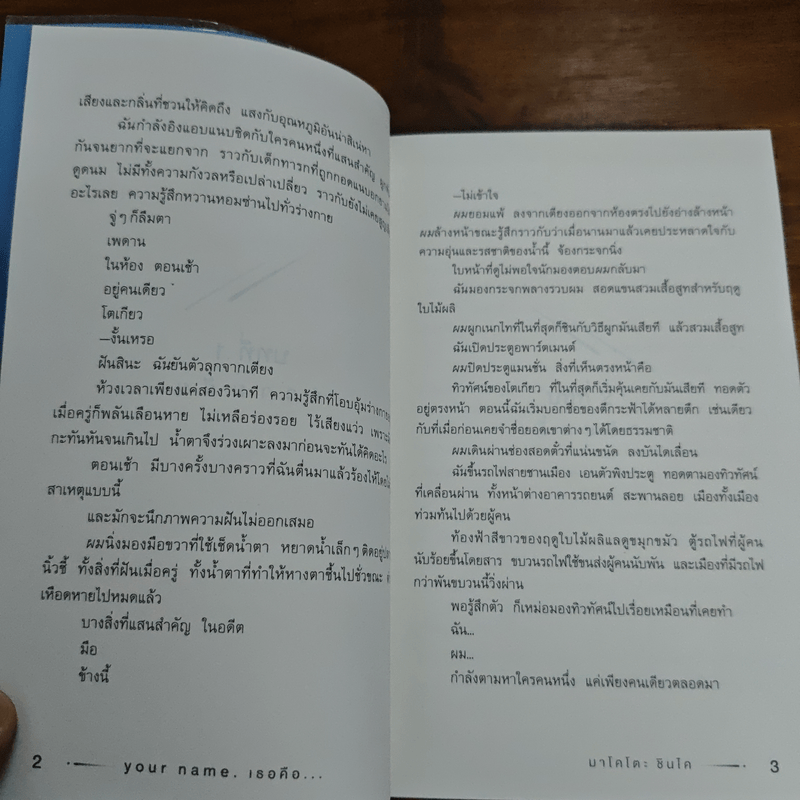 เสียงและกลิ่นที่ชวนให้คิดถึง แสงกับอุณหภูมิอันน่าสิเน่หา
ฉันกำลังอิงแอบแนบชิดกับใครคนหนึ่งที่แสนสำคัญ
กันจนยากที่จะแยกจาก ราวกับเด็กทารกที่ถูกกอดแนบอก
ดูดนม ไม่มีทั้งความกังวลหรือเปล่าเปลี่ยว ราวกับยังไม่เคย
อะไรเลย ความรู้สึกหวานหอมซ่านไปทั่วร่างกาย
จู่ๆ ก็ลืมตา
เพดาน
ในห้อง ตอนเช้า
อยู่คนเดียว
โตเกียว
—งั้นเหรอ
ฝันสินะ ฉันยันตัวลุกจากเตียง
ห้วงเวลาเพียงแค่สองวินาที ความรู้สึกที่โอบอุ้มร่างกาย
เมื่อครู่ก็พลันเลือนหาย ไม่เหลือร่องรอย ไร้เสียงแว่ว เพราะ
กะทันหันจนเกินไป น้ำตาจึงร่วงเผาะลงมาก่อนจะทันได้คิดอะไร
ตอนเช้า มีบางครั้งบางคราวที่ฉันตื่นมาแล้วร้องไห้โดย
สาเหตุแบบนี้
และมักจะนึกภาพความฝันไม่ออกเสมอ
ผมนิ่งมองมือขวาที่ใช้เช็ดน้ำตา หยาดน้ำเล็กๆ ติดอยู่
นิ้วชี้ ทั้งสิ่งที่ฝันเมื่อครู่ ทั้งน้ำตาที่ทำให้หางตาชื้นไปชั่วขณะ
เหือดหายไปหมดแล้ว
บางสิ่งที่แสนสำคัญ ในอดีต
มือ
ข้างนี้
2 your name. เธอคือ...
—ไม่เข้าใจ
ผมยอมแพ้ ลงจากเตียงออกจากห้องตรงไปยังอ่างล้างหน้า
ผมล้างหน้าขณะรู้สึกราวกับว่าเมื่อนานมาแล้วเคยประหลาดใจกับ
ความอุ่นและรสชาติของน้ำนี้ จ้องกระจกนิ่ง
ใบหน้าที่ดูไม่พอใจนักมองตอบผมกลับมา
ฉันมองกระจกพลางรวบผม สอดแขนสวมเสื้อสูทสำหรับฤดู
ใบไม้ผลิ
ผมผูกเนกไทที่ในที่สุดก็ชินกับวิธีผูกมันเสียที แล้วสวมเสื้อสูท
ฉันเปิดประตูอพาร์ตเมนต์
ผมปิดประตูแมนชั่น สิ่งที่เห็นตรงหน้าคือ
ทิวทัศน์ของโตเกียว ที่ในที่สุดก็เริ่มคุ้นเคยกับมันเสียที ทอดตัว
อยู่ตรงหน้า ตอนนี้ฉันเริ่มบอกชื่อของตึกระฟ้าได้หลายตึก เช่นเดียว
กับที่เมื่อก่อนเคยจำชื่อยอดเขาต่างๆ ได้โดยธรรมชาติ
ผมเดินผ่านช่องสอดตั๋วที่แน่นขนัด ลงบันไดเลื่อน
ฉันขึ้นรถไฟสายชานเมือง เอนตัวพิงประตู ทอดตามองทิวทัศน์
ที่เคลื่อนผ่าน ทั้งหน้าต่างอาคารรถยนต์ สะพานลอย เมืองทั้งเมือง
ท่วมท้นไปด้วยผู้คน
ท้องฟ้าสีขาวของฤดูใบไม้ผลิแลดูขมุกขมัว ตู้รถไฟที่ผู้คน
นับร้อยขึ้นโดยสาร ขบวนรถไฟใช้ขนส่งผู้คนนับพัน และเมืองที่มีรถไฟ
กว่าพันขบวนนี้วิ่งผ่าน
พอรู้สึกตัว ก็เหม่อมองทิวทัศน์ไปเรื่อยเหมือนที่เคยทำ
ฉัน...
ผม...
กำลังตามหาใครคนหนึ่ง แค่เพียงคนเดียวตลอดมา
มาโคโตะ ชินไค 3